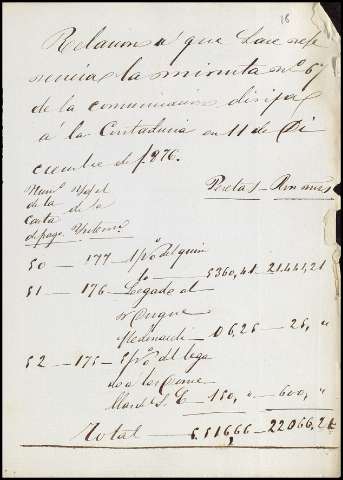 18
Relacion a que hace refe
rencia la minuta nº 6
de la comunicacion dirijida
a la Contaduria en 11 de Di
ciembre de 1876.
Numº
de la de la
Carta
de pago
Pesetas Rs.
50 — 177 — 1 pº del quin
to 5360,41 21.441,21
51 — 176 — Legado al
Duque
Medinaceli — 06,25 — 25, "
52 — 175 — del lega
do a los Come
150, " 600, "
Total — 5.516,66 — 22066,21